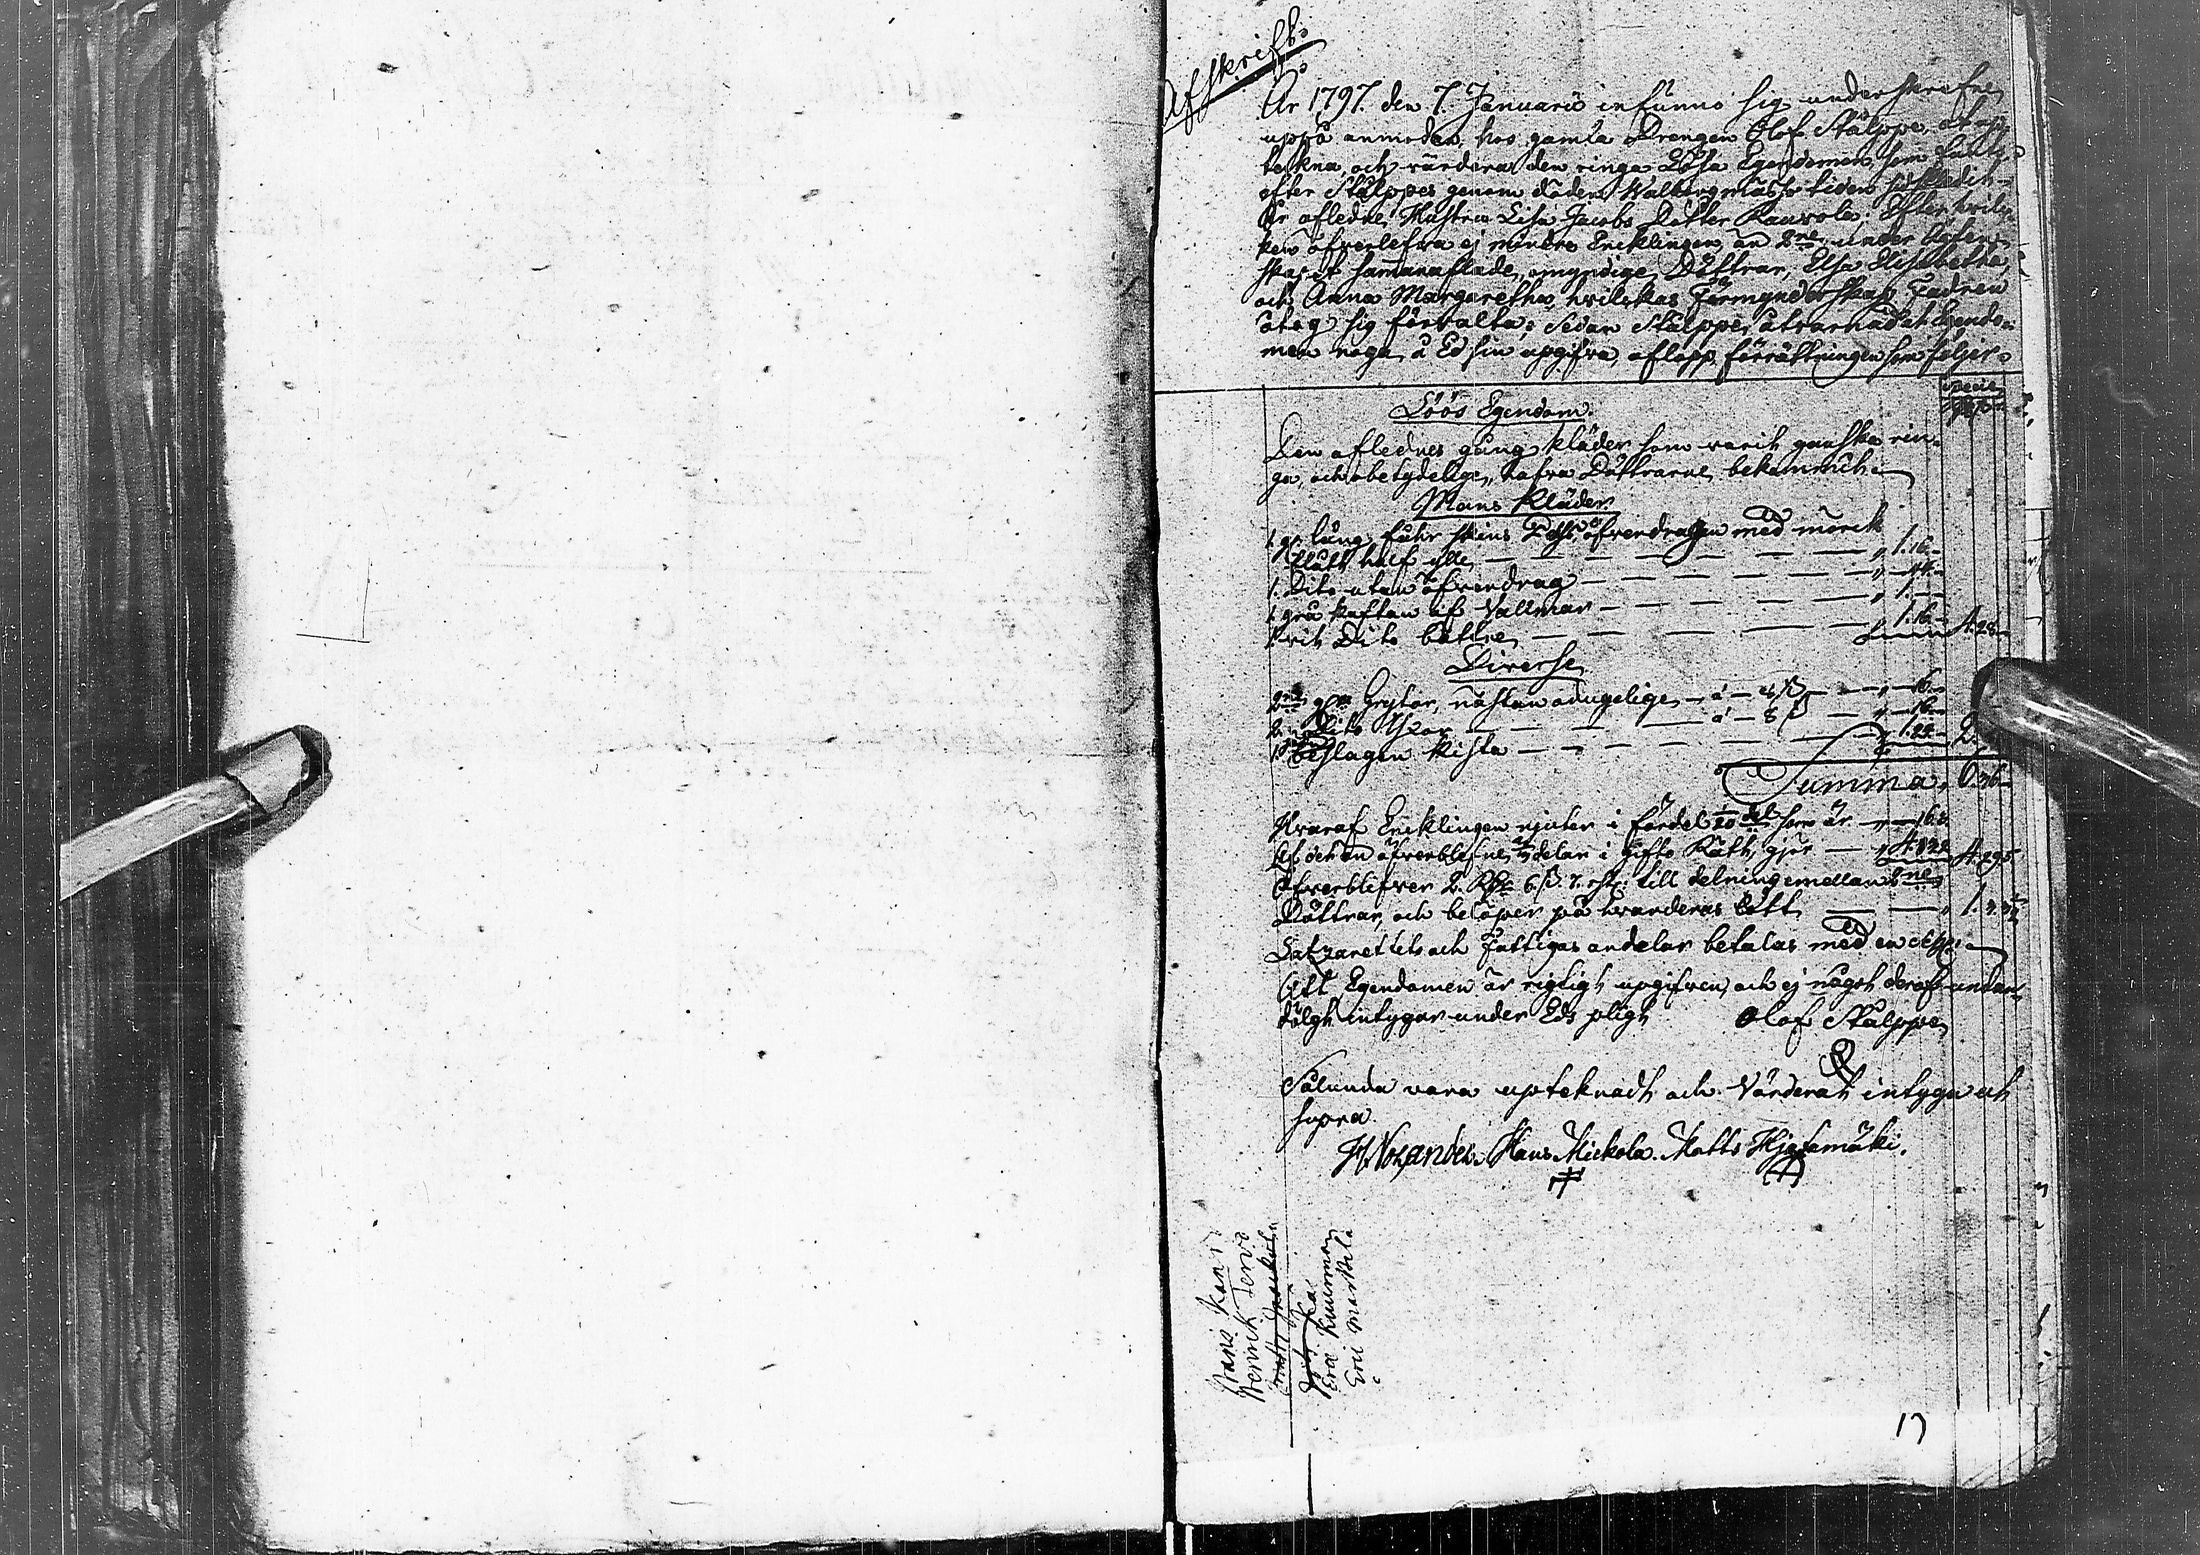 Afskrift
År 1797. den 7. Januarii infunno sig underskrefne
uppå anmodan, hos gamla Drengen Olof Stälppe, at upp
tekna och värdera den ringa Lösa Egendomen, som fants
efter Stälppes genom döden Walborgmässo tiden
År afledne, Hustru Lisa Jacobs Dotter Kauvola. Efter hvil-
ken öfverlefva ej mindre Encklingen, än 2ne under
skapet sammanaflade, omyndige Döttrar, Elsa Elisabetha,
och Anna Margaretha, hvilckas Förmynderskap Fadren
åtog sig förvalta; Sedan Stälppe, åtvarnad at Egendo-
men noga å Ed sin upgifva, aflopp förrättningen som följer.
Löös Egendom.
Den aflednes gång kläder som varit ganska rin-
ga, och obetydelige, hafva Döttrarne bekommit.
Mans Kläder
1. gl. lång fåhr skins öfverdragen med mörck
blått half ylle — 1.16.
1. Dito utan öfverdrag — 44.
1. grå kaftan af Vallmar — 1.
1. vit Dito bättre — 1.16. 4.28
Diverse
2ne gl. Grytor, nästan odugelige — à — 6.
2. Dito Yxor — à — 8 ß — 16.
1. beslagen kista — 1.22. 2.
Summa, 6.36
Hvaraf Encklingen njuter i fördel 1/20 del som är — 16.
Af den öfverblefne delar i Gifto Rätt, gjör — 4.
Öfverblifver 2. 6. ß. 7. till delning emellan 2ne
Döttrar, och belöper på hvarderas Lått — 1.3.
Latzarettets och Fattigas andelar betalas med en
Att Egendomen är rigtigt upgifven, och ej något deraf undan-
dölgt, intygar under Eds pligt Olof Stälppe
Sålunda vara upteknadt och Värderat, intyga ut
supra.
H. Norander. Hans Mickola. Matts Hjetamäki.
Hans
Henrik Tervo
Eric
Eric Marttila
17